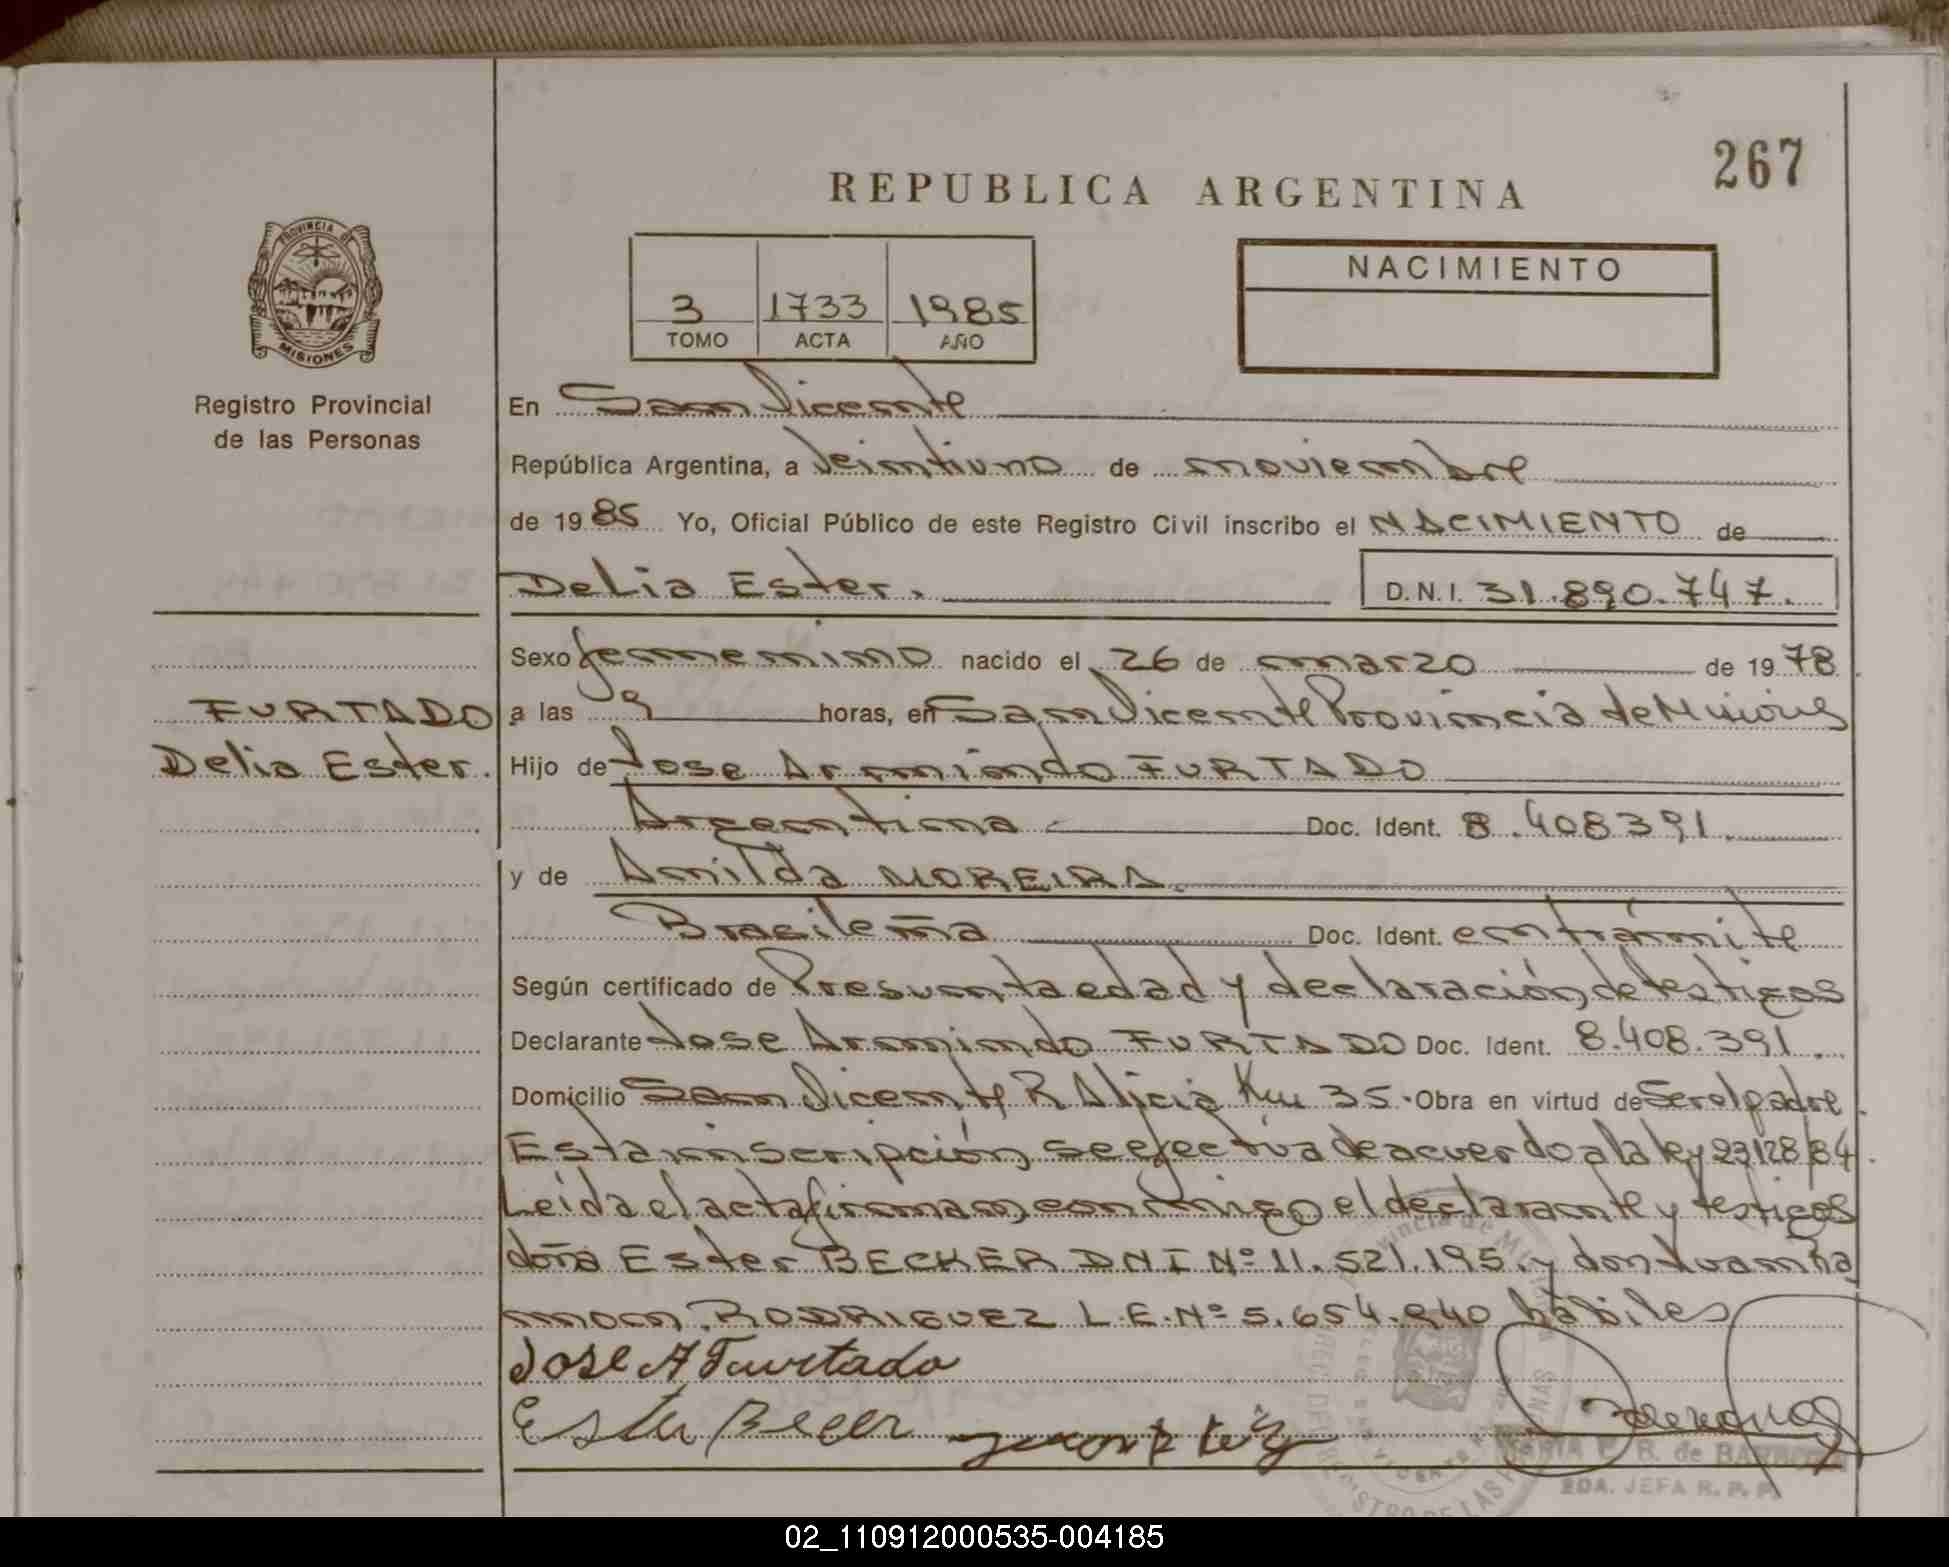 267
REPUBLICA ARGENTINA
PROVINCIA DE
MISIONES
Registro Provincial
de las Personas
3 1733 1985
TOMO ACTA AÑO
NACIMIENTO
En San Vicente
República Argentina, a Veintiuno de noviembre
de 1985 Yo, Oficial Público de este Registro Civil inscribo el NACIMIENTO de
Delia Ester. D.N.I. 31.890.747.
Sexo femenino nacido el 26 de marzo de 1978
FURTADO
Delia Ester.
a las 9 horas, en San Vicente Provincia de Misiones
Hijo de Jose Armindo FURTADO
Argentina Doc. Ident. 8.408391.
y de Anilda MOREIRA.
Brasileña Doc. Ident. en trámite
Según certificado de Presunta edad y declaración de testigos
Declarante Jose Armindo FURTADO Doc. Ident. 8.408.391.
Domicilio San Vicente R Alicia Km 35. Obra en virtud de Ser el padre.
Esta inscripción se efectúa de acuerdo a la ley 23128/84.
Leída el acta firman conmigo el declarante y testigos
doña Ester BECKER DNI Nº 11.521.195. y don Juan Ra
mon RODRIGUEZ L.E.Nº 5.654.940 hábiles
Jose A Furtado
Ester Becer
R. de BARBOZA
JEFA R. P. P.
02_110912000535-004185